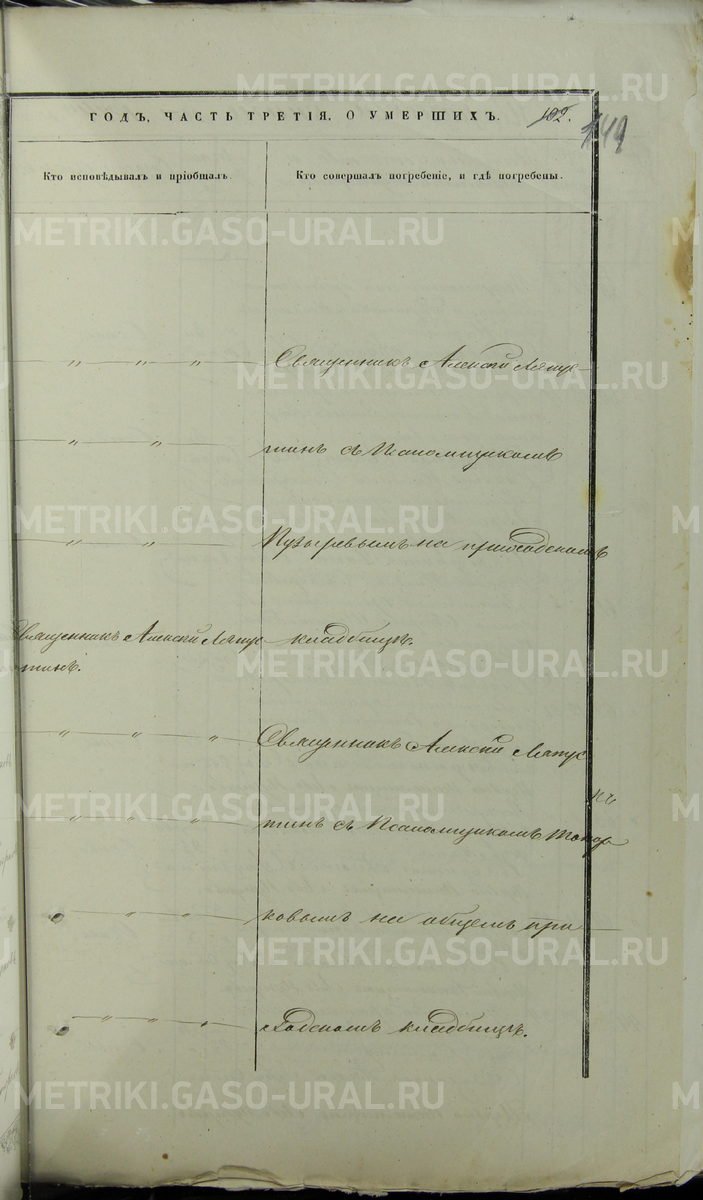 METRIKI.GASO-URAL.RU
ГОДЪ, ЧАСТЬ ТРЕТІЯ, О УМЕРШИХЪ. 102. 149
Кто исповѣдывалъ и пріобщалъ. Кто совершалъ погребеніе, и гдѣ погребены.
METRIKI.GASO-URAL.RU
" " " Священникъ Алексій Ляпус-
METRIKI.GASO-URAL.RU
" " тинъ съ Псаломщикомъ
METRIKI.GASO-URAL.RU
" " Пузыревымъ на приходскомъ
Священникъ Алексій Ляпус кладбищѣ.
METRIKI.GASO-URAL.RU
тинъ.
" " " Священникъ Алексій Ляпус
METRIKI.GASO-URAL.RU
" " " " тинъ съ Псаломщикомъ
" " " ковымъ на общемъ при
METRIKI.GASO-URAL.RU
" " " ходскомъ кладбищѣ.
METRIKI.GASO-URAL.RU